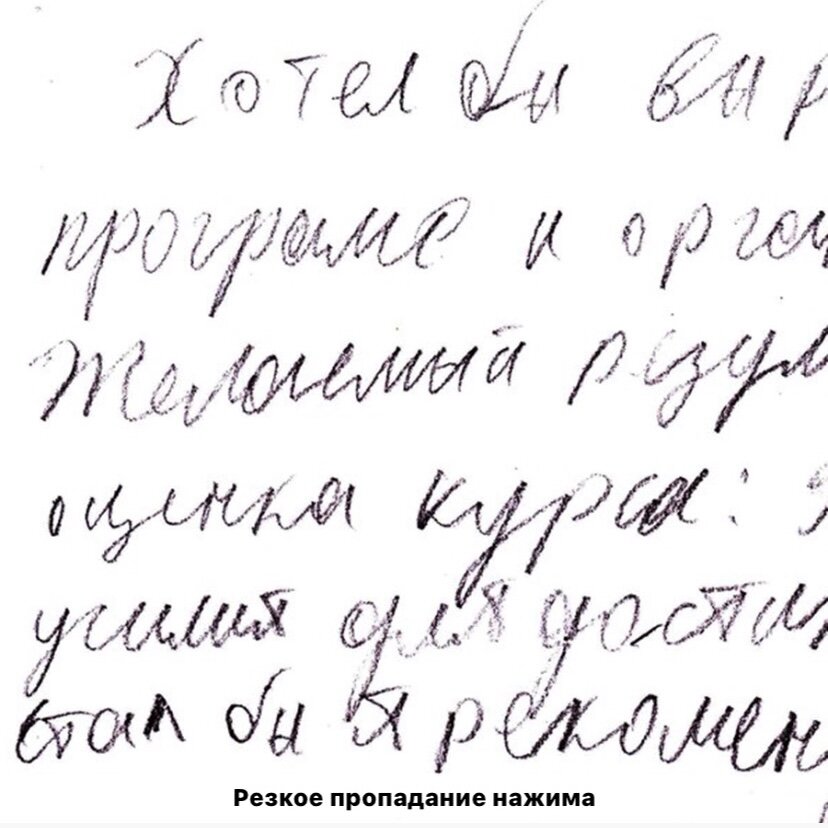 Хотел бы выр
програме и орган
Желаемый резул
оценка курса:
усилия для дости
стал бы я рекомен
Резкое пропадание нажима